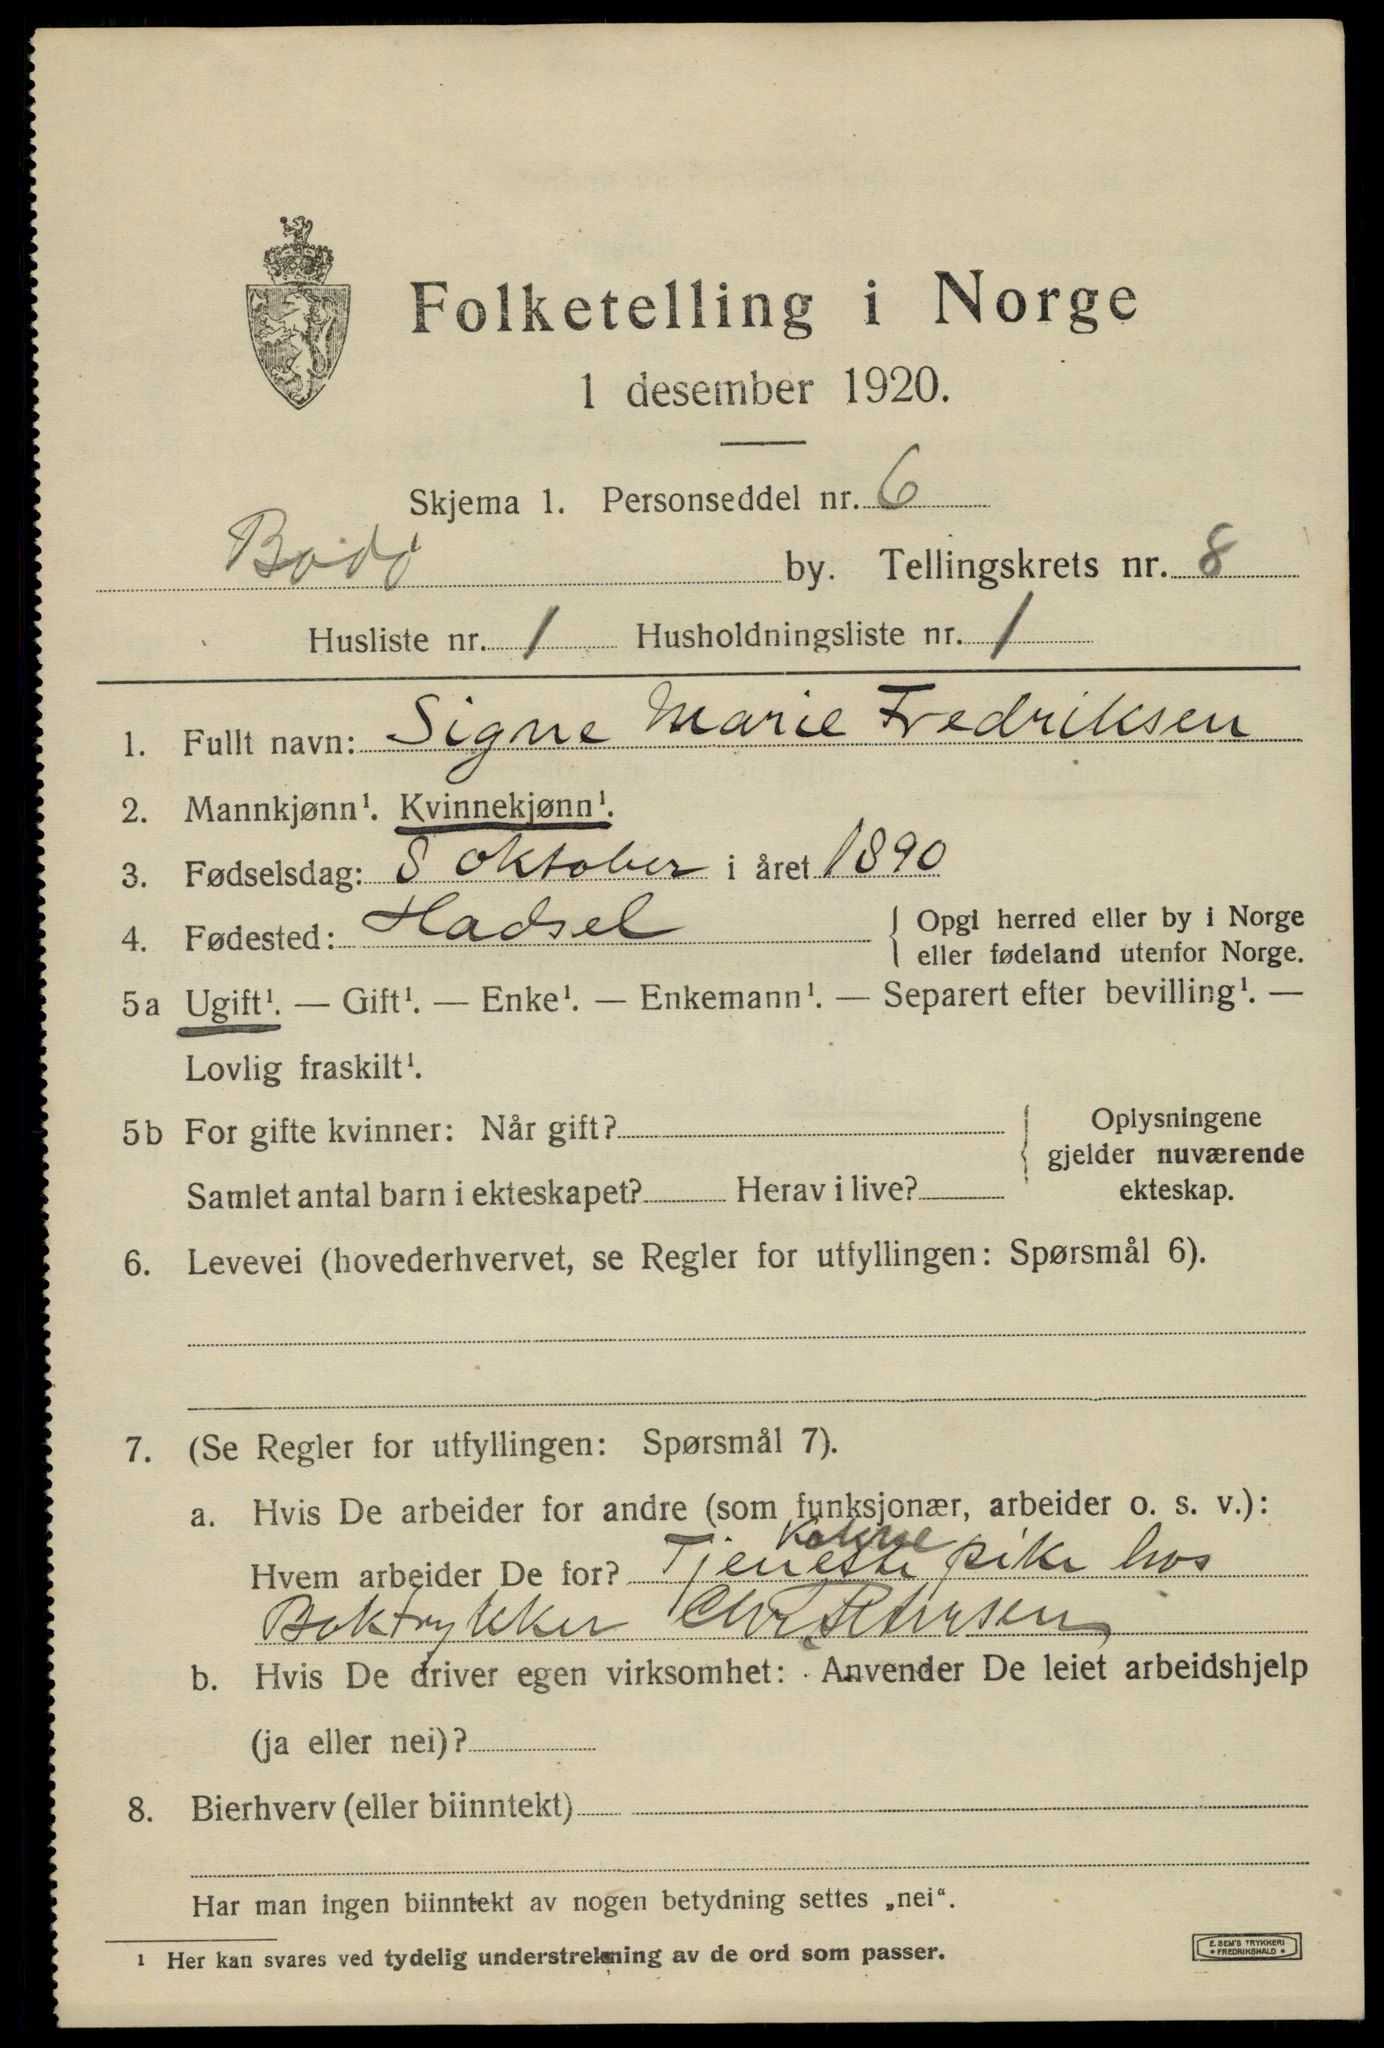 Folketelling i Norge
1 desember 1920.
Skjema 1. Personseddel nr. 6
Bodø by. Tellingskrets nr. 8
Husliste nr. 1 Husholdningsliste nr. 1
1. Fullt navn: Signe Marie Fredriksen
2. Mannkjønn¹. Kvinnekjønn¹.
3. Fødselsdag: 8 oktober i året 1890
4. Fødested: Hadsel { Opgi herred eller by i Norge
eller fødeland utenfor Norge.
5a Ugift¹. — Gift¹. — Enke¹. — Enkemann¹. — Separert efter bevilling¹. —
Lovlig fraskilt¹.
5b For gifte kvinner: Når gift? { Oplysningene
gjelder nuværende
Samlet antal barn i ekteskapet? Herav i live? ekteskap.
6. Levevei (hovederhvervet, se Regler for utfyllingen: Spørsmål 6).
7. (Se Regler for utfyllingen: Spørsmål 7).
a. Hvis De arbeider for andre (som funksjonær, arbeider o. s. v.):
Hvem arbeider De for? Tjeneste pike hos
Boktrykker Chr
b. Hvis De driver egen virksomhet: Anvender De leiet arbeidshjelp
(ja eller nei)?
8. Bierhverv (eller biinntekt)
Har man ingen biinntekt av nogen betydning settes „nei“.
¹ Her kan svares ved tydelig understrekning av de ord som passer.
E. SEM'S TRYKKERI
* FREDRIKSHALD *